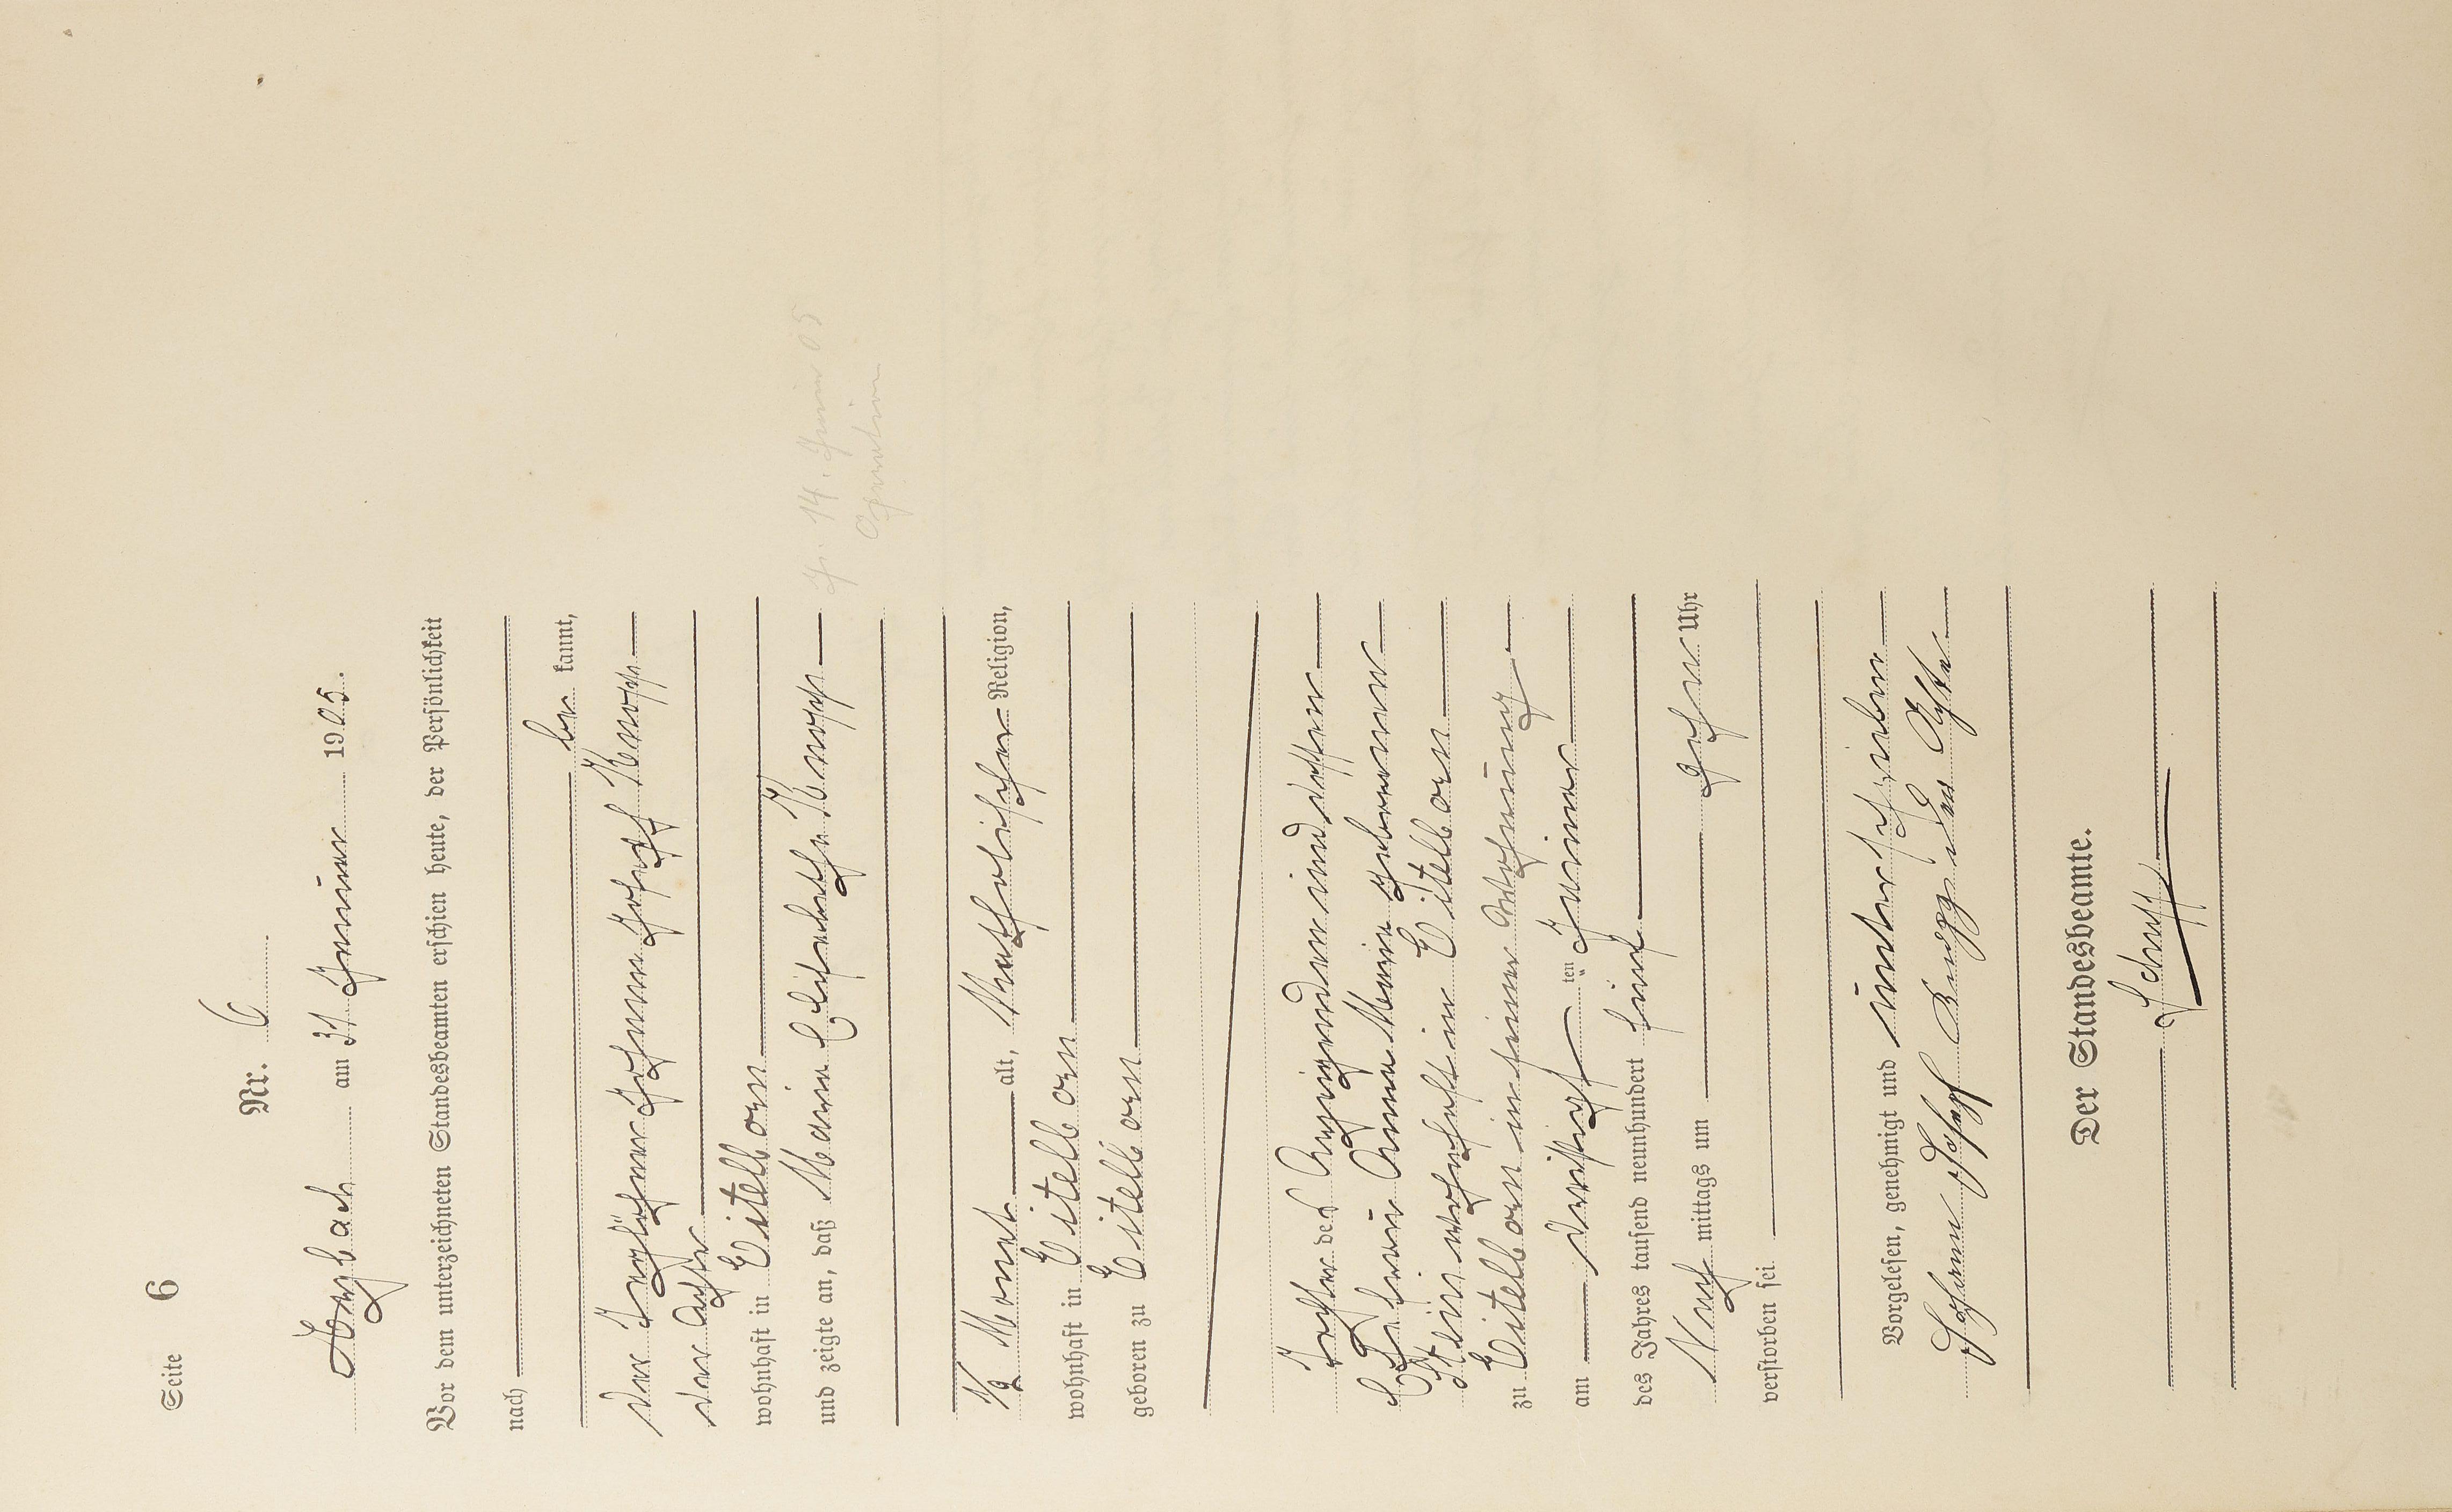 Seite 6
Nr. 6
Arzbach am 31 Januar 1905.
Vor dem unterzeichneten Standesbeamten erschien heute, der Persönlichkeit
nach be kannt,
der Taglöhner Johann Josef Knopp
der Achte
wohnhaft in Eitelborn
und zeigte an, daß Maria Elisabetha Knopp
1/2 Monat alt, Katholischer Religion,
wohnhaft in Eitelborn
geboren zu Eitelborn
Tochter des Anzeigenden und dessen
Ehefrau Anna Maria geborenen
wohnhaft in Eitelborn
zu Eitelborn in seiner Wohnung
am dreißigsten Januar
des Jahres tausend neunhundert fünf
Nach mittags um zehn Uhr
verstorben sei
Vorgelesen, genehmigt und unterschrieben
Johann Josef der Achte
Der Standesbeamte.
14. Januar 05